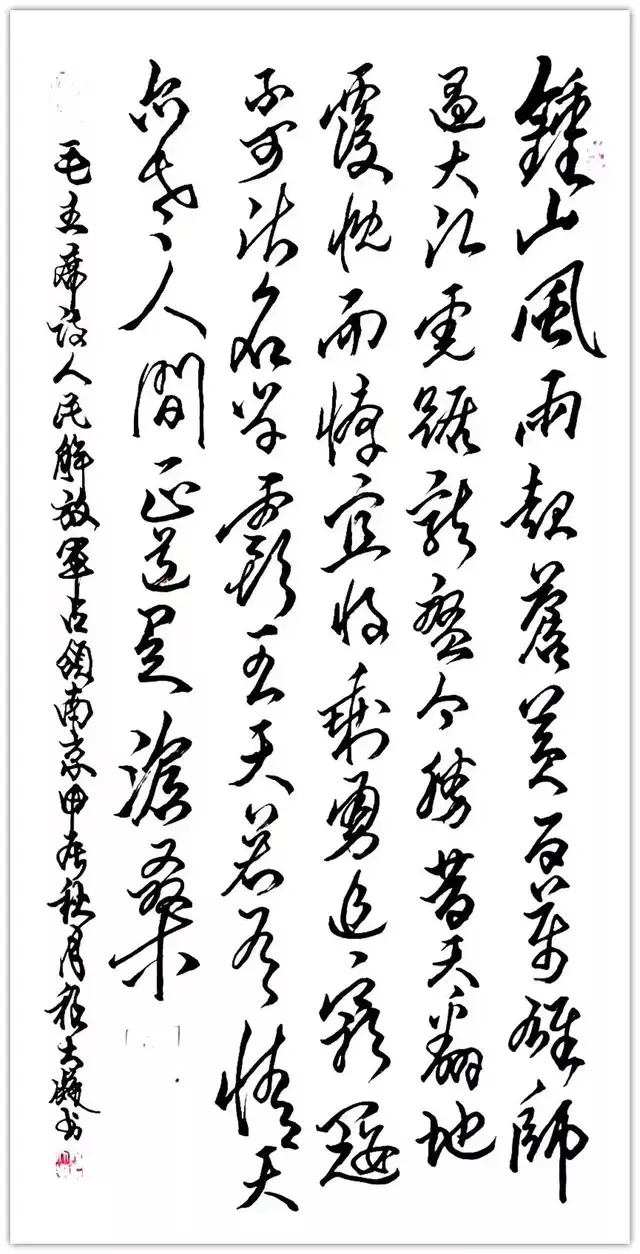 鍾山風雨起蒼黃百萬雄師
過大江虎踞龍盤今勝昔天翻地
覆慨而慷宜將剩勇追窮寇
不可沽名學霸王天若有情天
亦老人間正道是滄桑
毛主席詩人民解放軍占領南京甲秋月書